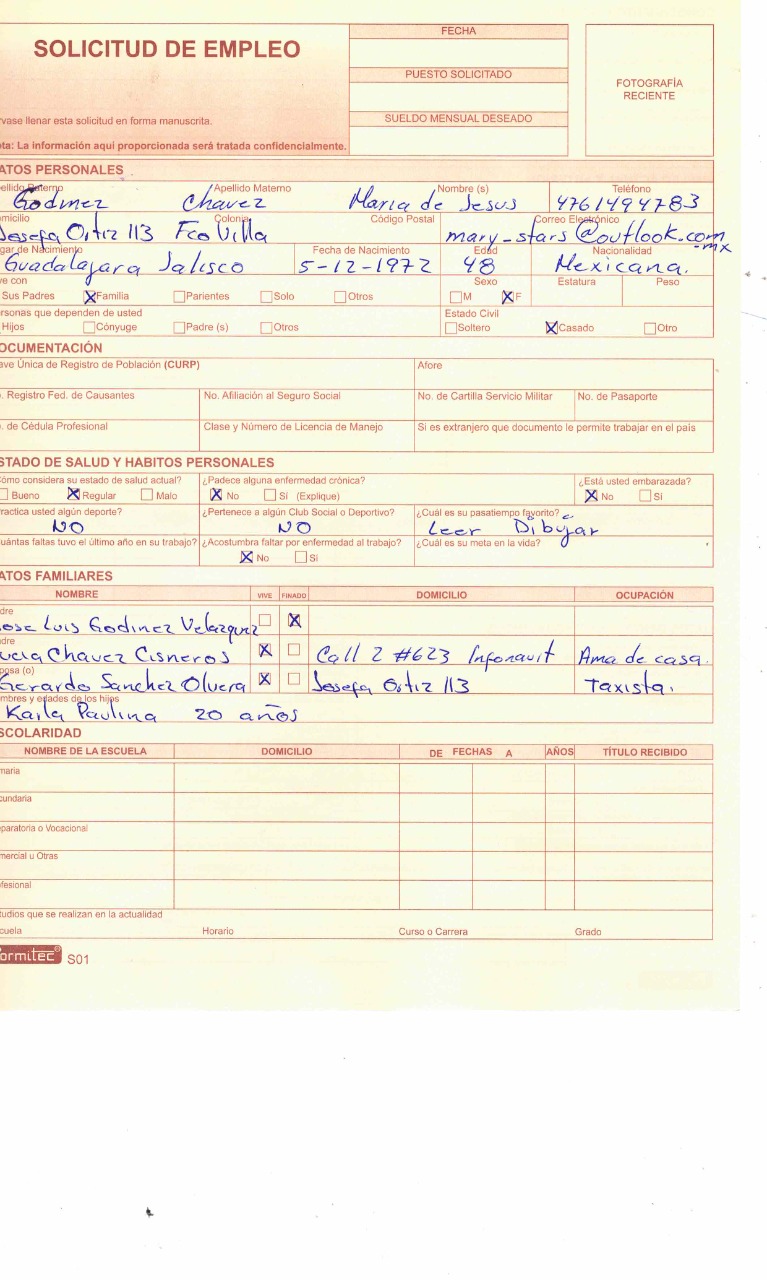 SOLICITUD DE EMPLEO
FECHA
PUESTO SOLICITADO
SUELDO MENSUAL DESEADO
FOTOGRAFÍA
RECIENTE
rvase llenar esta solicitud en forma manuscrita.
ota: La información aqui proporcionada será tratada confidencialmente.
ATOS PERSONALES
ellido Paterno Apellido Materno Nombre (s) Teléfono
Godinez Chavez Maria de Jesus 4761494783
micilio Colonia Código Postal Correo Electrónico
Josefa Ortiz 113 Fco Villa mary_stars@outlook.com
.mx
gar de Nacimiento Fecha de Nacimiento Edad Nacionalidad
Guadalajara Jalisco 5-12-1972 48 Mexicana.
ve con Sexo Estatura Peso
Sus Padres X Familia Parientes Solo Otros M X F
ersonas que dependen de usted Estado Civil
Hijos Cónyuge Padre (s) Otros Soltero X Casado Otro
OCUMENTACIÓN
ave Única de Registro de Población (CURP) Afore
. Registro Fed. de Causantes No. Afiliación al Seguro Social No. de Cartilla Servicio Militar No. de Pasaporte
. de Cédula Profesional Clase y Número de Licencia de Manejo Si es extranjero que documento le permite trabajar en el país
STADO DE SALUD Y HABITOS PERSONALES
ómo considera su estado de salud actual? ¿Padece alguna enfermedad crónica? ¿Está usted embarazada?
Bueno X Regular Malo X No Sí (Explique) X No Sí
ractica usted algún deporte? ¿Pertenece a algún Club Social o Deportivo? ¿Cuál es su pasatiempo favorito?
NO NO Leer Dibujar
uántas faltas tuvo el último año en su trabajo? ¿Acostumbra faltar por enfermedad al trabajo? ¿Cuál es su meta en la vida?
X No Sí
ATOS FAMILIARES
NOMBRE VIVE FINADO DOMICILIO OCUPACIÓN
dre
Jose Luis Godinez Velazquez X
dre
Lucia Chavez Cisneros X Call 2 #623 Infonavit Ama de casa.
posa (o)
Gerardo Sanchez Olvera X Josefa Ortiz 113 Taxista.
mbres y edades de los hijos
Karla Paulina 20 años
SCOLARIDAD
NOMBRE DE LA ESCUELA DOMICILIO DE FECHAS A AÑOS TÍTULO RECIBIDO
maria
cundaria
eparatoria o Vocacional
mercial u Otras
ofesional
tudios que se realizan en la actualidad
cuela Horario Curso o Carrera Grado
ormitec S01